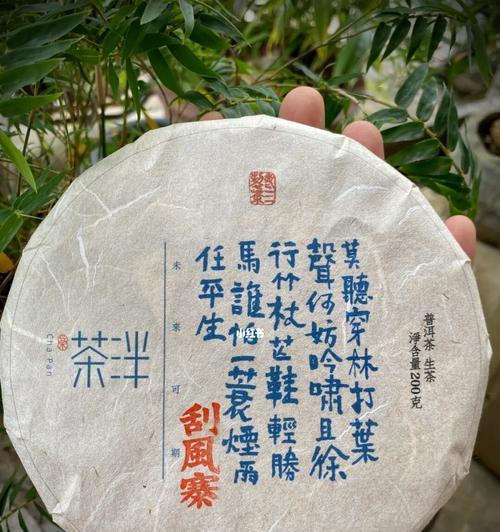 普洱茶 生茶
淨含量200克
莫聽穿林打葉
聲何妨吟嘯且徐
行竹杖芒鞋輕勝
馬誰怕一蓑煙雨
任平生
刮風寨
未來可期
茶泮
Cha Pan